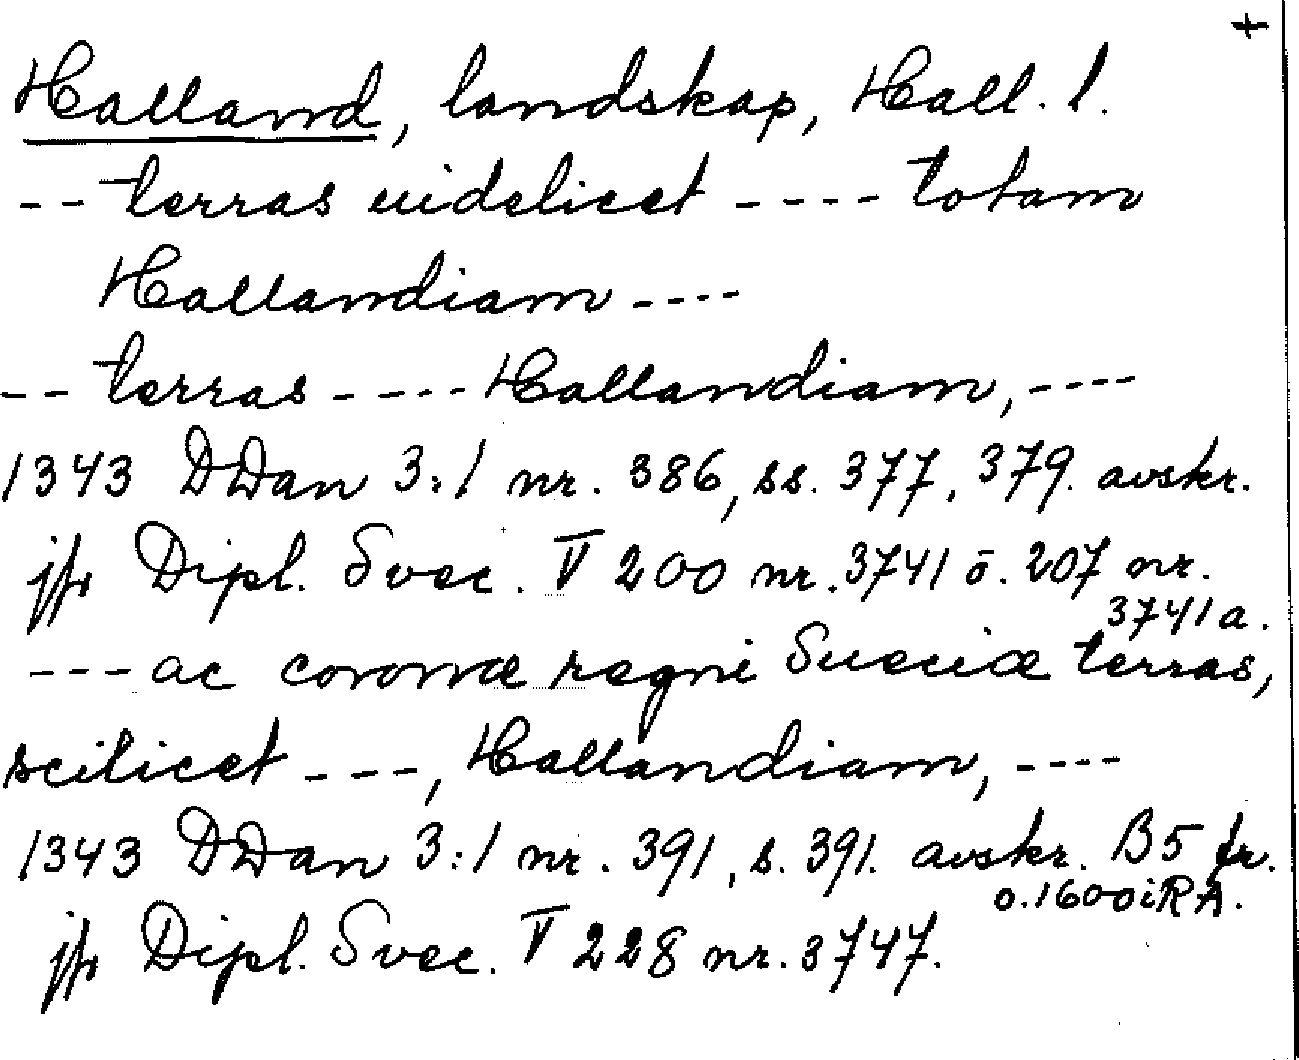 +
Halland, landskap, Hall. l.
-- terras uidelicet ---- totam
Hallandiam ----
-- terras ---- Hallandiam, ----
1343 DDan 3:1 nr. 386, ss. 377, 379. avskr.
jfr Dipl. Svec. V 200 nr. 3741 o. 207 nr.
3741a.
--- ac coronæ regni Sueciæ terras,
scilicet ---, Hallandiam, ----
1343 DDan 3:1 nr. 391, s. 391. avskr. B5 fr.
o. 1600 i RA.
jfr Dipl. Svec. V 228 nr. 3747.